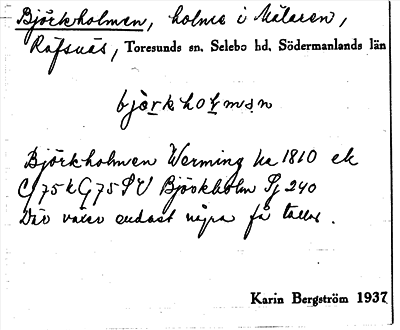 Björkholmen, holme i Mälaren,
Räfsnäs, Toresunds sn, Selebo hd, Södermanlands län
björkholmen
Björkholmen Werming ha 1810 ek
Cg 75 k G 75 SV Björkholm Sj 240
Där växer endast några få tallar.
Karin Bergström 1937